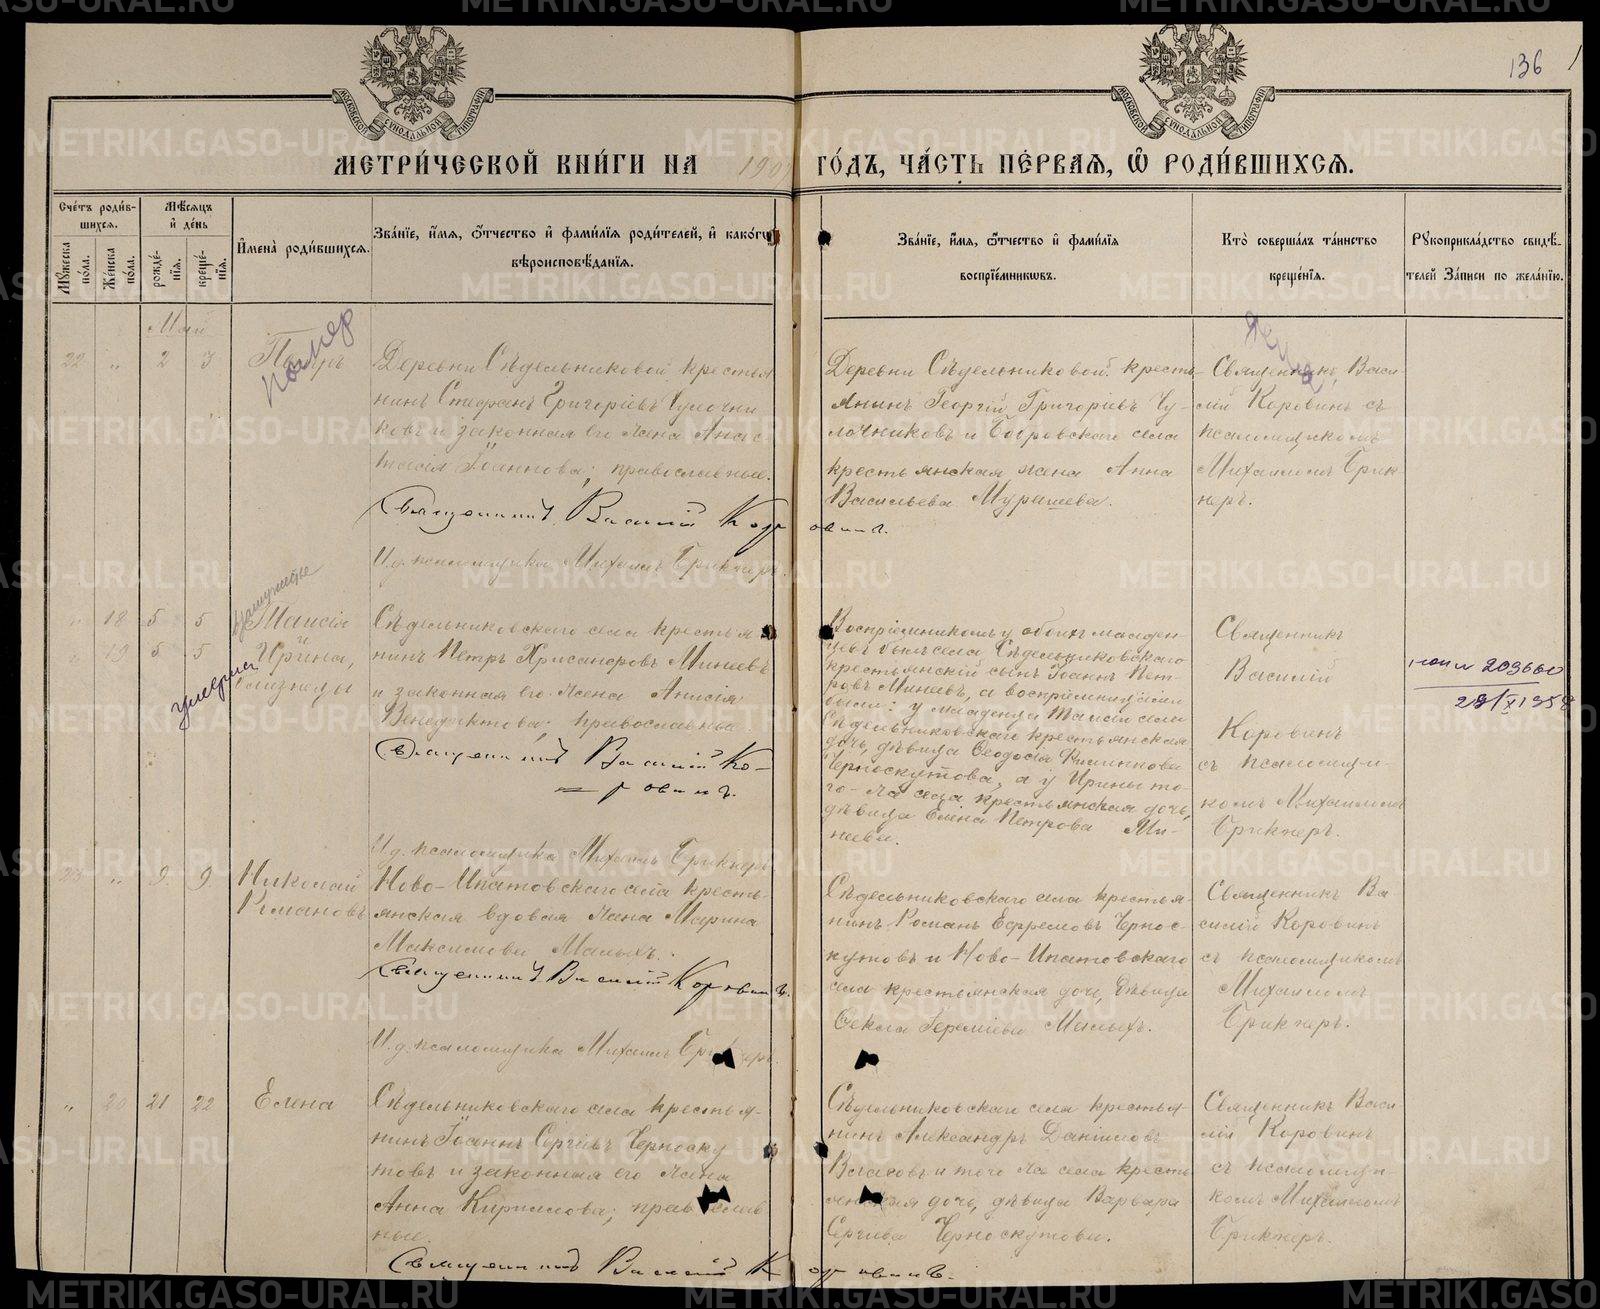 136
МОСКОВСКОЙ СѴНОДАЛЬНОЙ ТИПОГРАФІИ
МОСКОВСКОЙ СѴНОДАЛЬНОЙ ТИПОГРАФІИ
МЕТРИ́ЧЕСКОЙ КНИ́ГИ НА 190 ГО́ДЪ, ЧА́СТЬ ПЕ́РВАЯ, Ѡ҆ РОДИ́ВШИХСЯ.
Сче́тъ роди́в-
шихся.
Мꙋ́жеска по́ла.
Же́нска по́ла.
Мѣ́сяцъ
и҆ де́нь
рожде́-
нїя.
креще́-
нїя.
И҆мена̀ роди́вшихся.
Зва́нїе, и҆́мя, ѻ҆́тчество и҆ фами́лїя роди́телей, и҆ како́гѡ
вѣроисповѣ́данїя.
Зва́нїе, и҆́мя, ѻ҆́тчество и҆ фами́лїя
воспрїе́мникѡвъ.
Кто̀ соверша́лъ та́инство
креще́нїя.
Рꙋкоприкла́дство свидѣ́-
телей за́писи по жела́нїю.
Май
22 " 2 3
помер
Деревни Сѣдельниковой крестья
нинъ Стефанъ Григоріевъ Чулочни
ковъ и законная его жена Анас
тасія Іоаннова; православные.
Священникъ Василій Коровинъ.
И.д. псаломщика Михаилъ Брикнеръ.
Деревни Сѣдельниковой кресть-
янинъ Георгій Григоріевъ Чу-
лочниковъ и Бобровскаго села
крестьянская жена Анна
Васильева Мурашева.
Священникъ Васи-
лій Коровинъ съ
псаломщикомъ
Михаиломъ Брик-
неръ.
" 18 5 5 Таисія
" 19 5 5 Ирина,
близнецы
умерла
Сѣдельниковскаго села крестья
нинъ Петръ Хрисанфовъ Минеевъ
и законная его жена Анисія
Венедиктова; православные.
Священникъ Василій Ко-
ровинъ.
И.д. псаломщика Михаилъ Брикнеръ
Воспріемникомъ у обоихъ младен-
цевъ былъ села Сѣдельниковскаго
крестьянскій сынъ Іоаннъ Пет-
ровъ Минеевъ, а воспріемницами
были: у младенца Таисіи села
Сѣдельниковскаго крестьянская
дочь, дѣвица Ѳеодосія Филиппова
Черноскутова, а у Ирины то-
го-же села крестьянская дочь,
дѣвица Елена Петрова Ми-
неева.
Священникъ
Василій
Коровинъ
съ псаломщи-
комъ Михаиломъ
Брикнеръ.
203660
23 " 9 9 Николай
Романовъ
Ново-Ипатовскаго села кресть-
янская вдовая жена Марина
Максимова Малыхъ.
Священникъ Василій Коровинъ.
И.д. псаломщика Михаилъ Брикнеръ.
Сѣдельниковскаго села крестья-
нинъ Романъ Ефремовъ Чернос-
кутовъ и Ново-Ипатовскаго
села крестьянская дочь, дѣвица
Ѳекла Іереміева Малыхъ.
Священникъ Ва
силій Коровинъ
съ псаломщикомъ
Михаиломъ
Брикнеръ.
" 20 21 22 Елена
Сѣдельниковскаго села крестья-
нинъ Іоаннъ Сергіевъ Черноску
товъ и законная его жена
Анна Кириллова; православ
ные.
Священникъ Василій Коровинъ.
Сѣдельниковскаго села крестья-
нинъ Александръ Даніиловъ
Власовъ и того же села кресть
янская дочь, дѣвица Варвара
Сергіева Черноскутова.
Священникъ Васи
лій Коровинъ
съ псаломщи-
комъ Михаиломъ
Брикнеръ.
METRIKI.GASO-URAL.RU